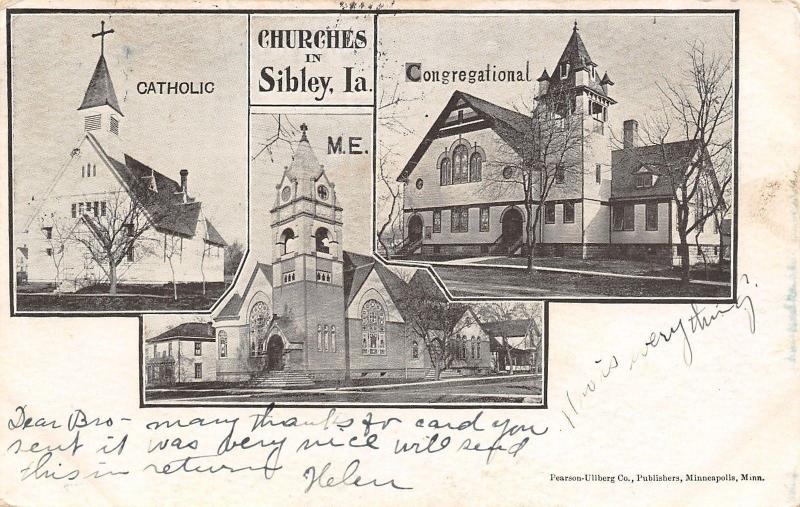 CHURCHES
IN
Sibley, Ia.
CATHOLIC
M.E.
Congregational
How is everything
Dear Bro- many thanks for card you
sent it was very nice will send
this in return Helen
Pearson-Ullberg Co., Publishers, Minneapolis, Minn.